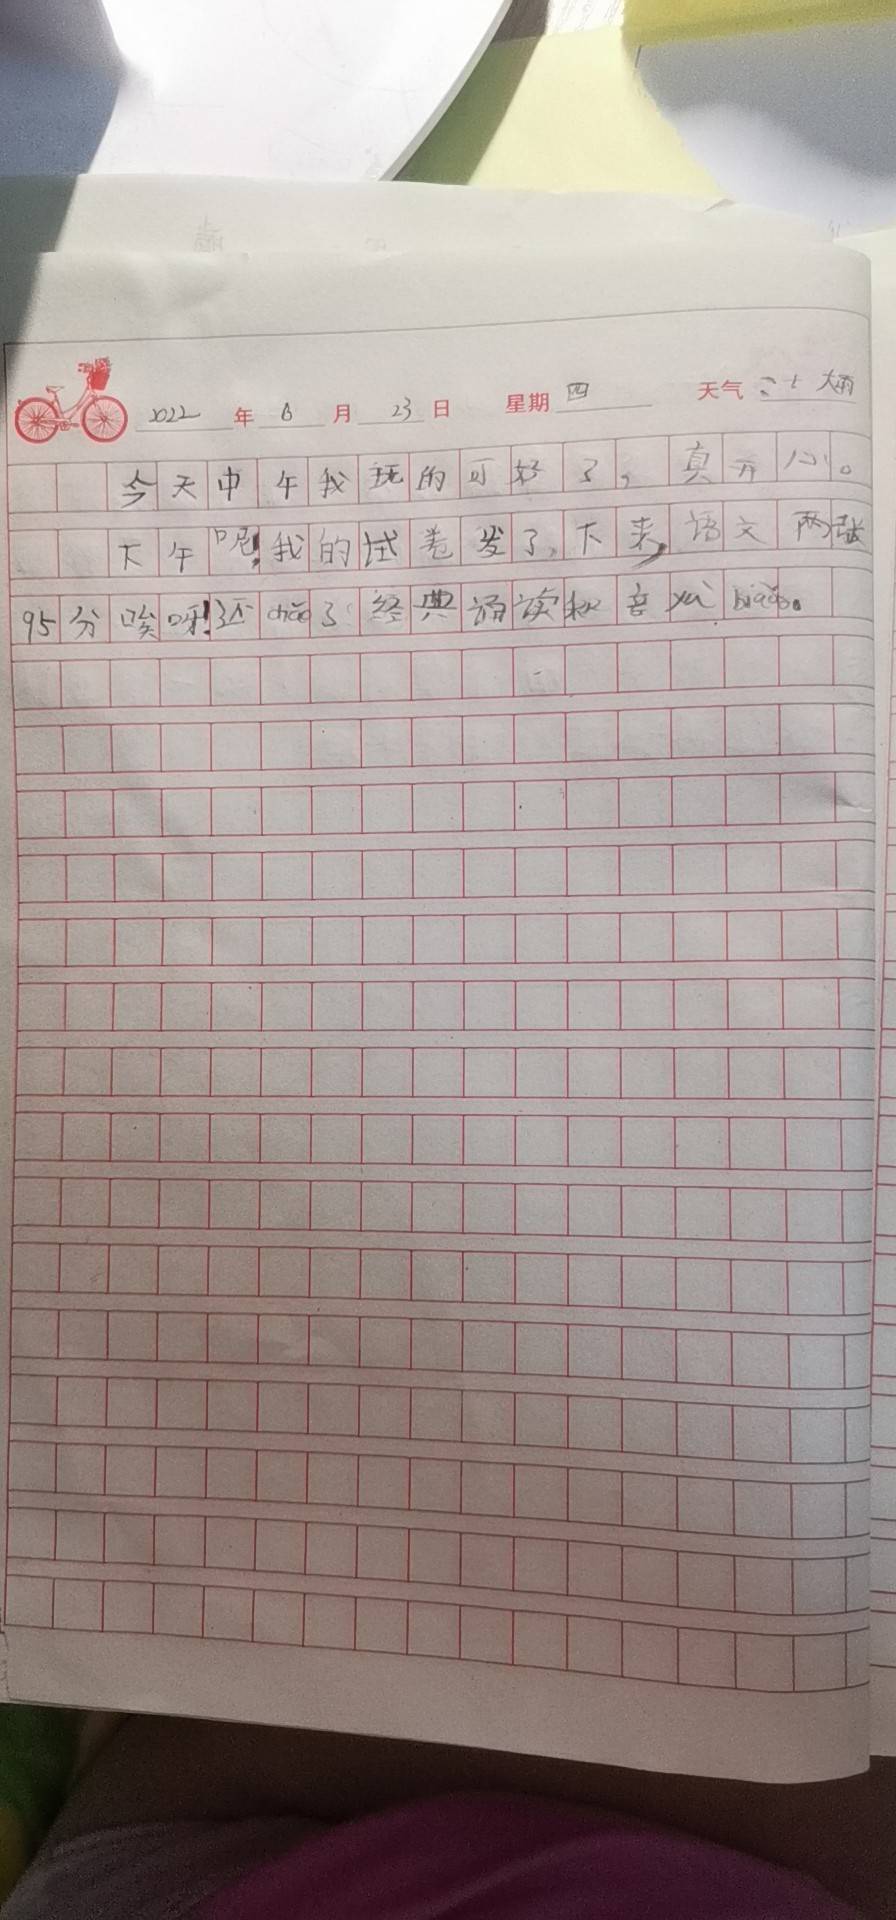 2022 年 6 月 23 日 星期 四 天气 大雨
今天中午我玩的可好了，真开心。
下午呢！我的试卷发了，下来，语文两张
95分唉呀！还 chāo 了 经典诵读和音 yuè biǎo。